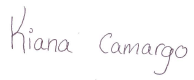 Kiana Camargo